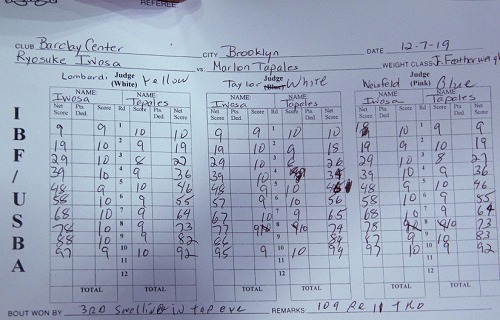 REFEREE
CLUB Barclay Center CITY Brooklyn DATE 12-7-19
Ryosuke Iwasa vs. Marlon Tapales WEIGHT CLASS Jr. Featherweight
Lombardi Judge (White) Yellow Taylor Judge White Neufeld Judge (Pink) Blue
NAME NAME NAME NAME NAME NAME
Iwasa Tapales Iwasa Tapales Iwasa Tapales
Net Score Pts. Ded. Score Rd Score Pts. Ded. Net Score Net Score Pts. Ded. Score Rd Score Pts. Ded. Net Score Net Score Pts. Ded. Score Rd Score Pts. Ded. Net Score
9 9 1 10 10 9 9 1 10 10 10 1 9 9
19 10 2 9 19 19 10 2 18 19 9 2 10 19
29 10 3 8 27 29 10 3 8 26 29 10 3 8 27
39 10 4 9 36 39 10 4 39 10 4 9 36
48 9 5 10 46 48 9 5 10 48 9 5 10 46
58 10 6 9 55 57 9 6 10 56 58 10 6 9 55
68 10 7 9 64 67 10 7 9 65 68 10 7 9 64
78 10 8 9 73 77 8 74 78 8 73
88 10 9 9 82 86 9 9 10 84 88 10 9 9 82
97 9 10 10 92 95 9 10 10 94 97 9 10 10 92
11 11 11
12 12 12
TOTAL TOTAL TOTAL TOTAL TOTAL TOTAL
IBF/USBA
BOUT WON BY 3RD Swelling in Tap eye REMARKS 109 Re 11 TKO